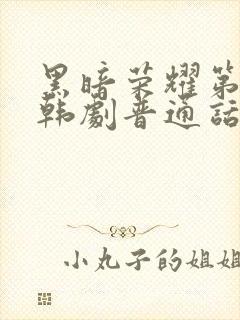 黑暗荣耀第
韩劇普通话
小丸子的姐姐